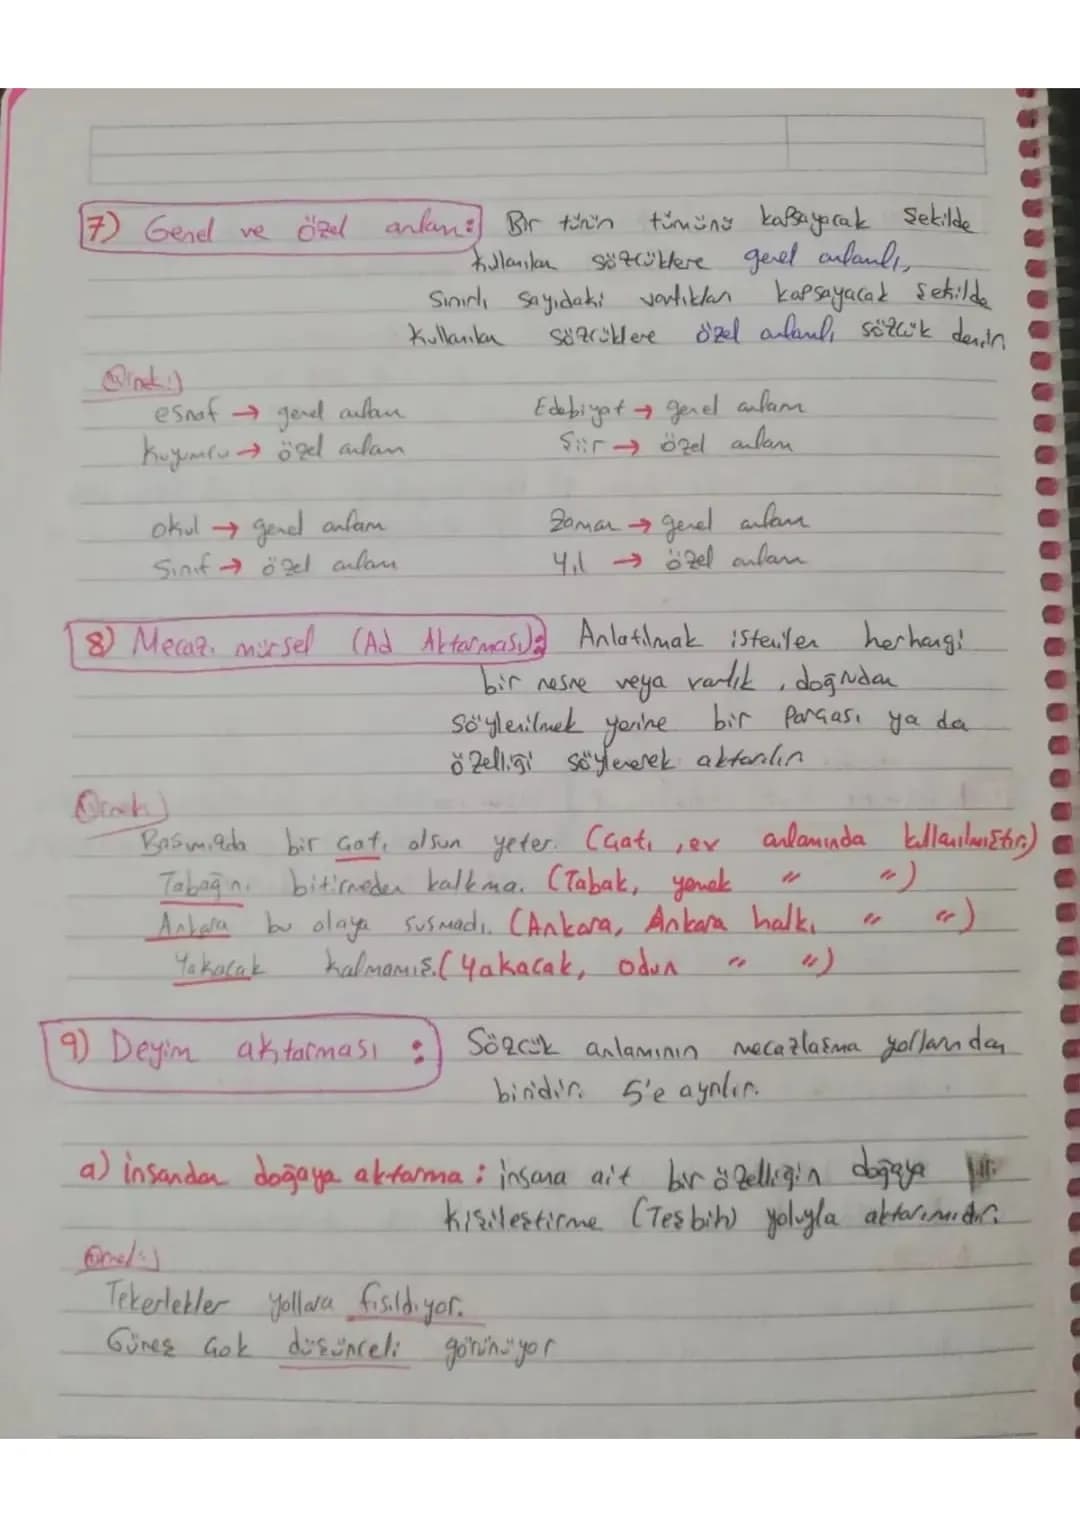 7) Genel ve özel anlam: Bir türün tümünü kapsayacak şekilde
kullanılan sözcüklere genel anlamlı,
sınırlı sayıdaki varlıkları kapsayacak şekilde
kullanılan sözcüklere özel anlamlı sözcük denir.
Örnek:)
esnaf → genel anlam Edebiyat → genel anlam
kuyumcu → özel anlam Şiir → özel anlam
okul → genel anlam Zaman → genel anlam
Sınıf → özel anlam Yıl → özel anlam
8) Mecaz. mürsel (Ad Aktarması): Anlatılmak istenilen herhangi
bir nesne veya varlık, doğrudan
söylenilmek yerine bir parçası ya da
özelliği söylenerek aktarılır
Örnek)
Başımızda bir çatı olsun yeter. (Çatı, ev anlamında kullanılmıştır.)
Tabağını bitirmeden kalkma. (Tabak, yemek " ")
Ankara bu olaya susmadı. (Ankara, Ankara halkı " ")
Yakacak kalmamış. (Yakacak, odun " ")
9) Deyim aktarması : Sözcük anlamının mecazlaşma yollarından
biridir. 5'e ayrılır.
a) insandan doğaya aktarma : insana ait bir özelliğin doğaya
kişileştirme (Teşbih) yoluyla aktarımıdır.
Örnek:)
Tekerlekler yollara fısıldıyor.
Güneş çok düşünceli görünüyor